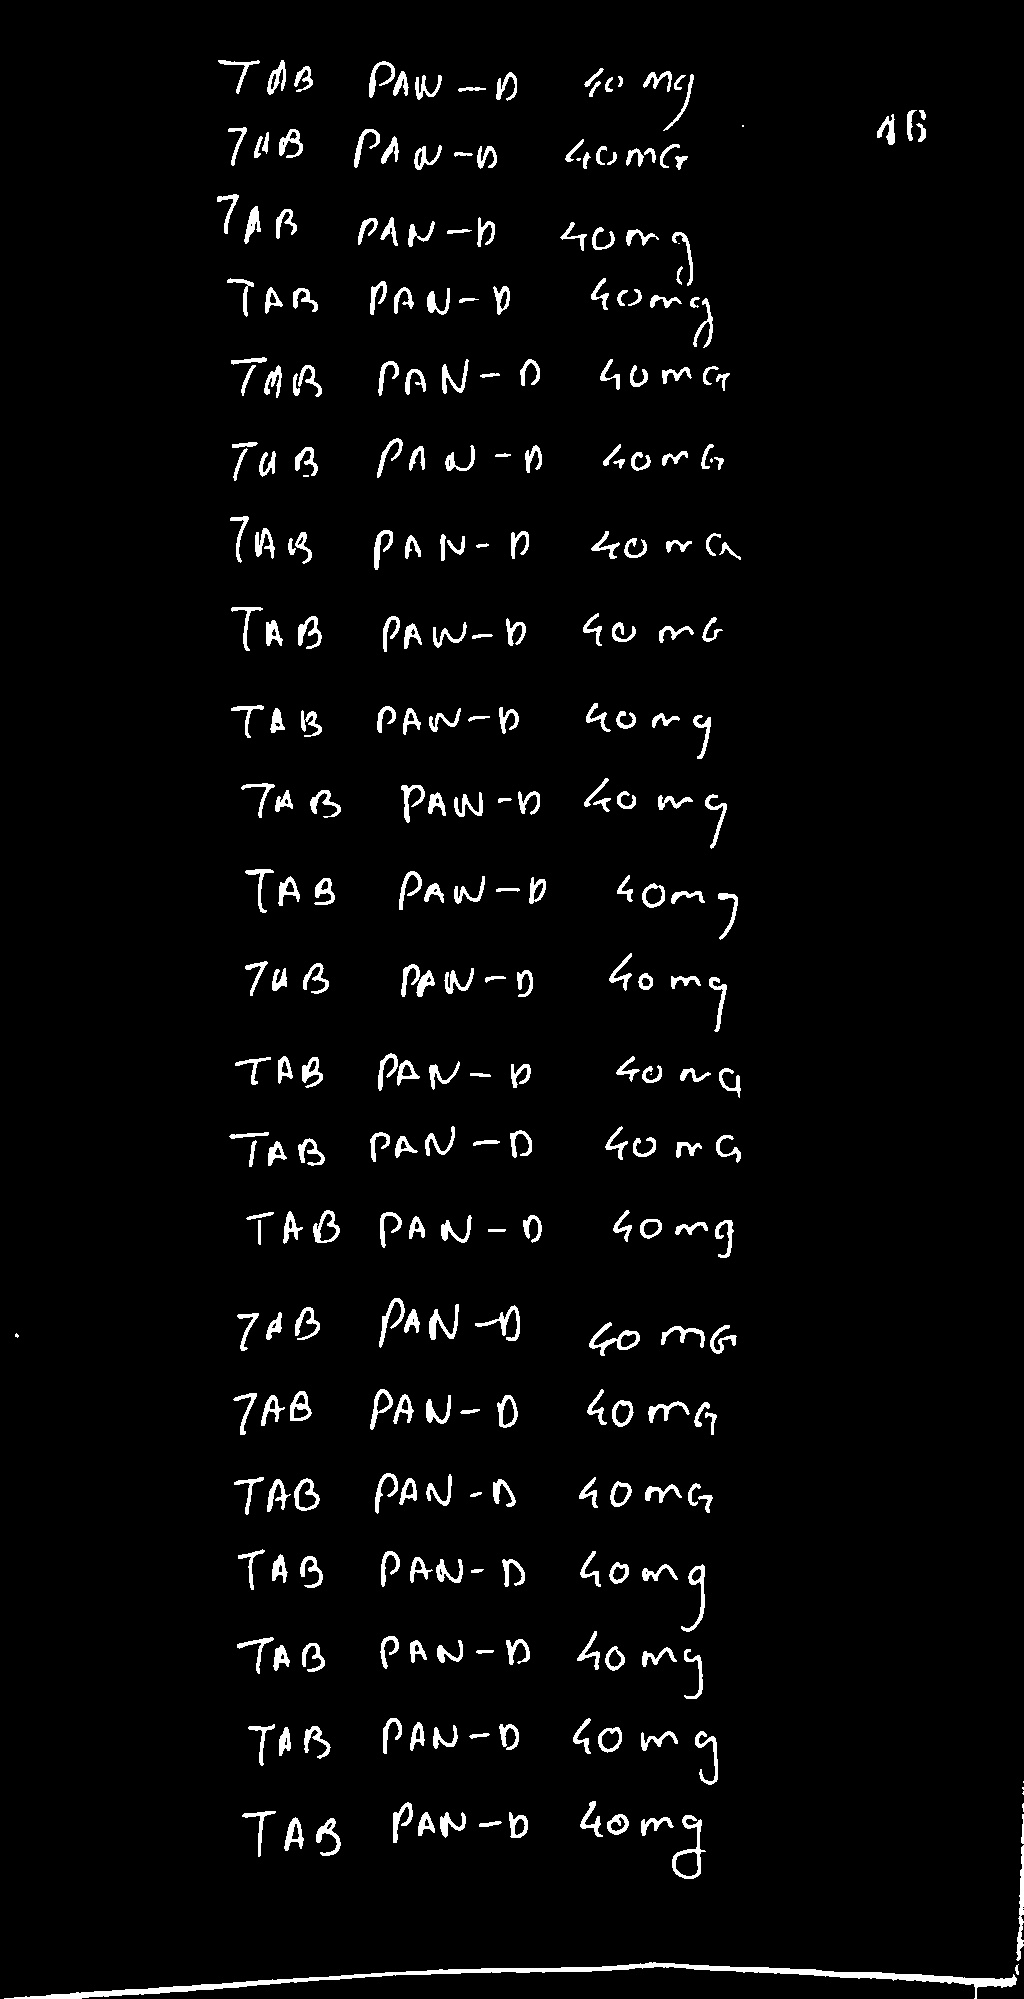 TAB PAN-D 40 mg
16
TAB PAN-D 40mG
TAB PAN-D 40mg
TAB PAN-D 40mg
TAB PAN-D 40mG
TAB PAN-D 40mG
TAB PAN-D 40mG
TAB PAN-D 40 mG
TAB PAN-D 40mg
TAB PAN-D 40mg
TAB PAN-D 40mg
TAB PAN-D 40mg
TAB PAN-D 40mg
TAB PAN-D 40mG
TAB PAN-D 40mg
TAB PAN-D 40 mG
TAB PAN-D 40mG
TAB PAN-D 40mG
TAB PAN-D 40mg
TAB PAN-D 40mg
TAB PAN-D 40mg
TAB PAN-D 40mg